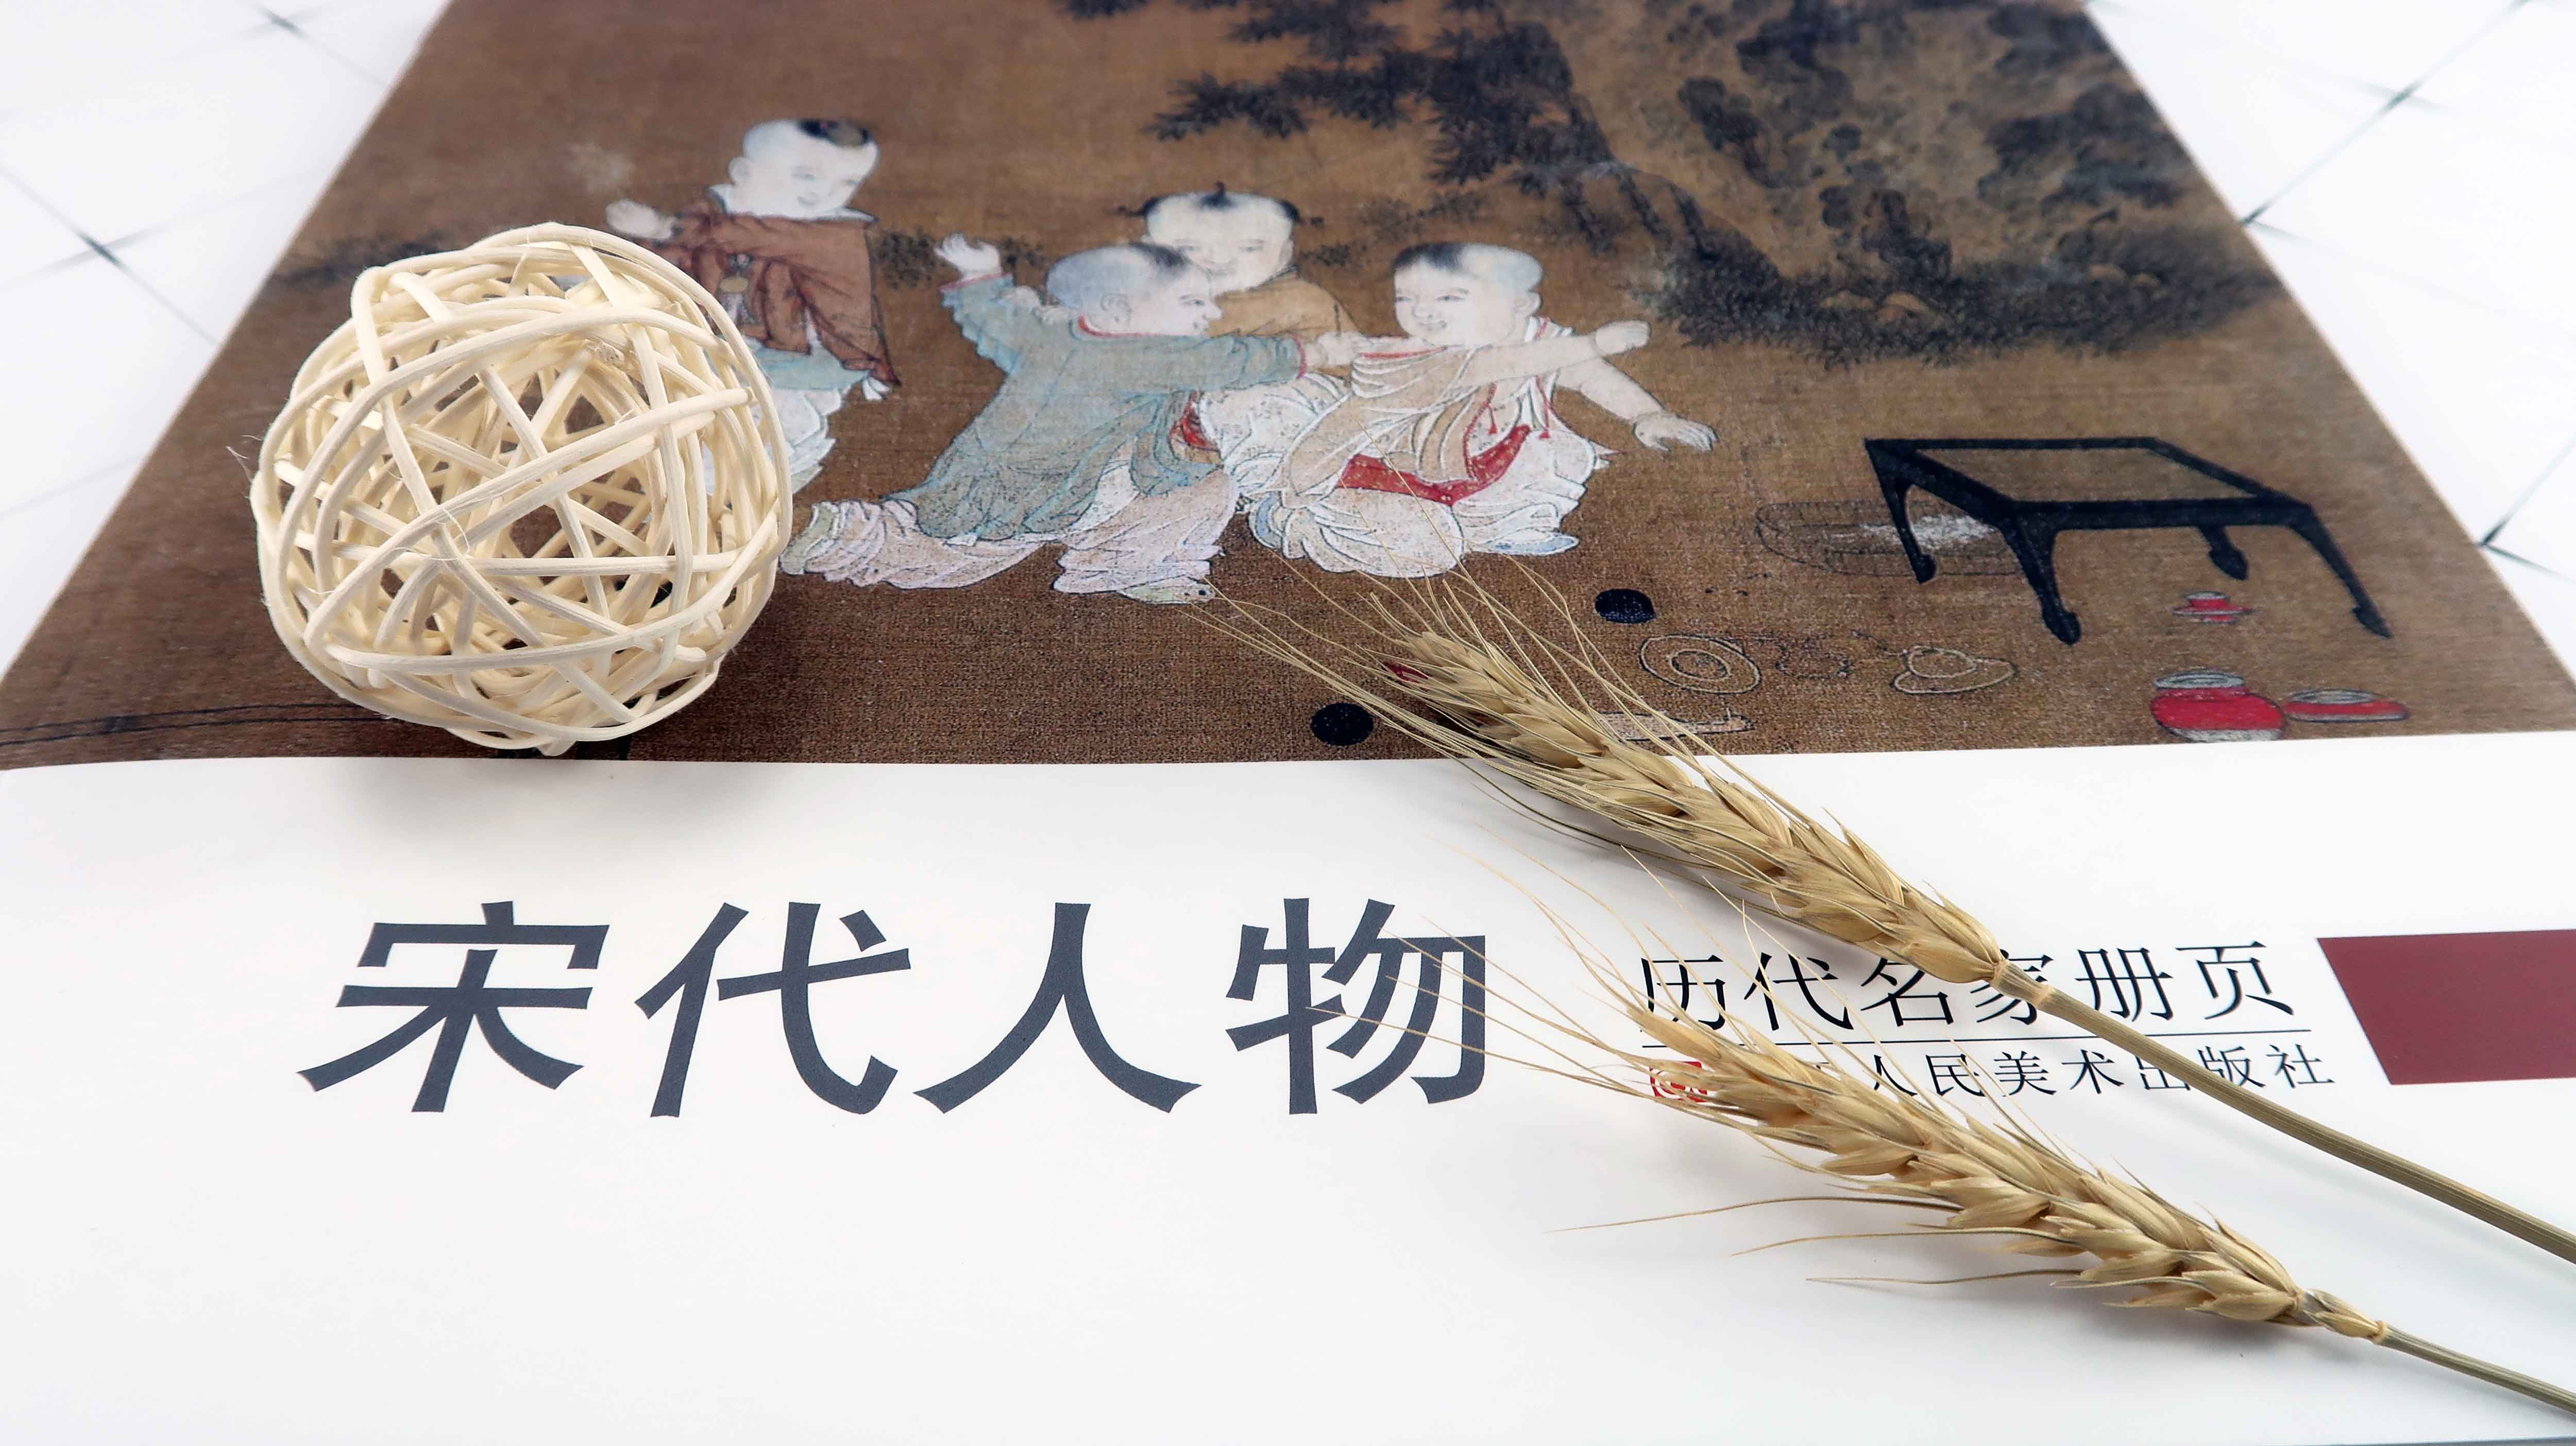 宋代人物
历代名家册页
人民美术出版社